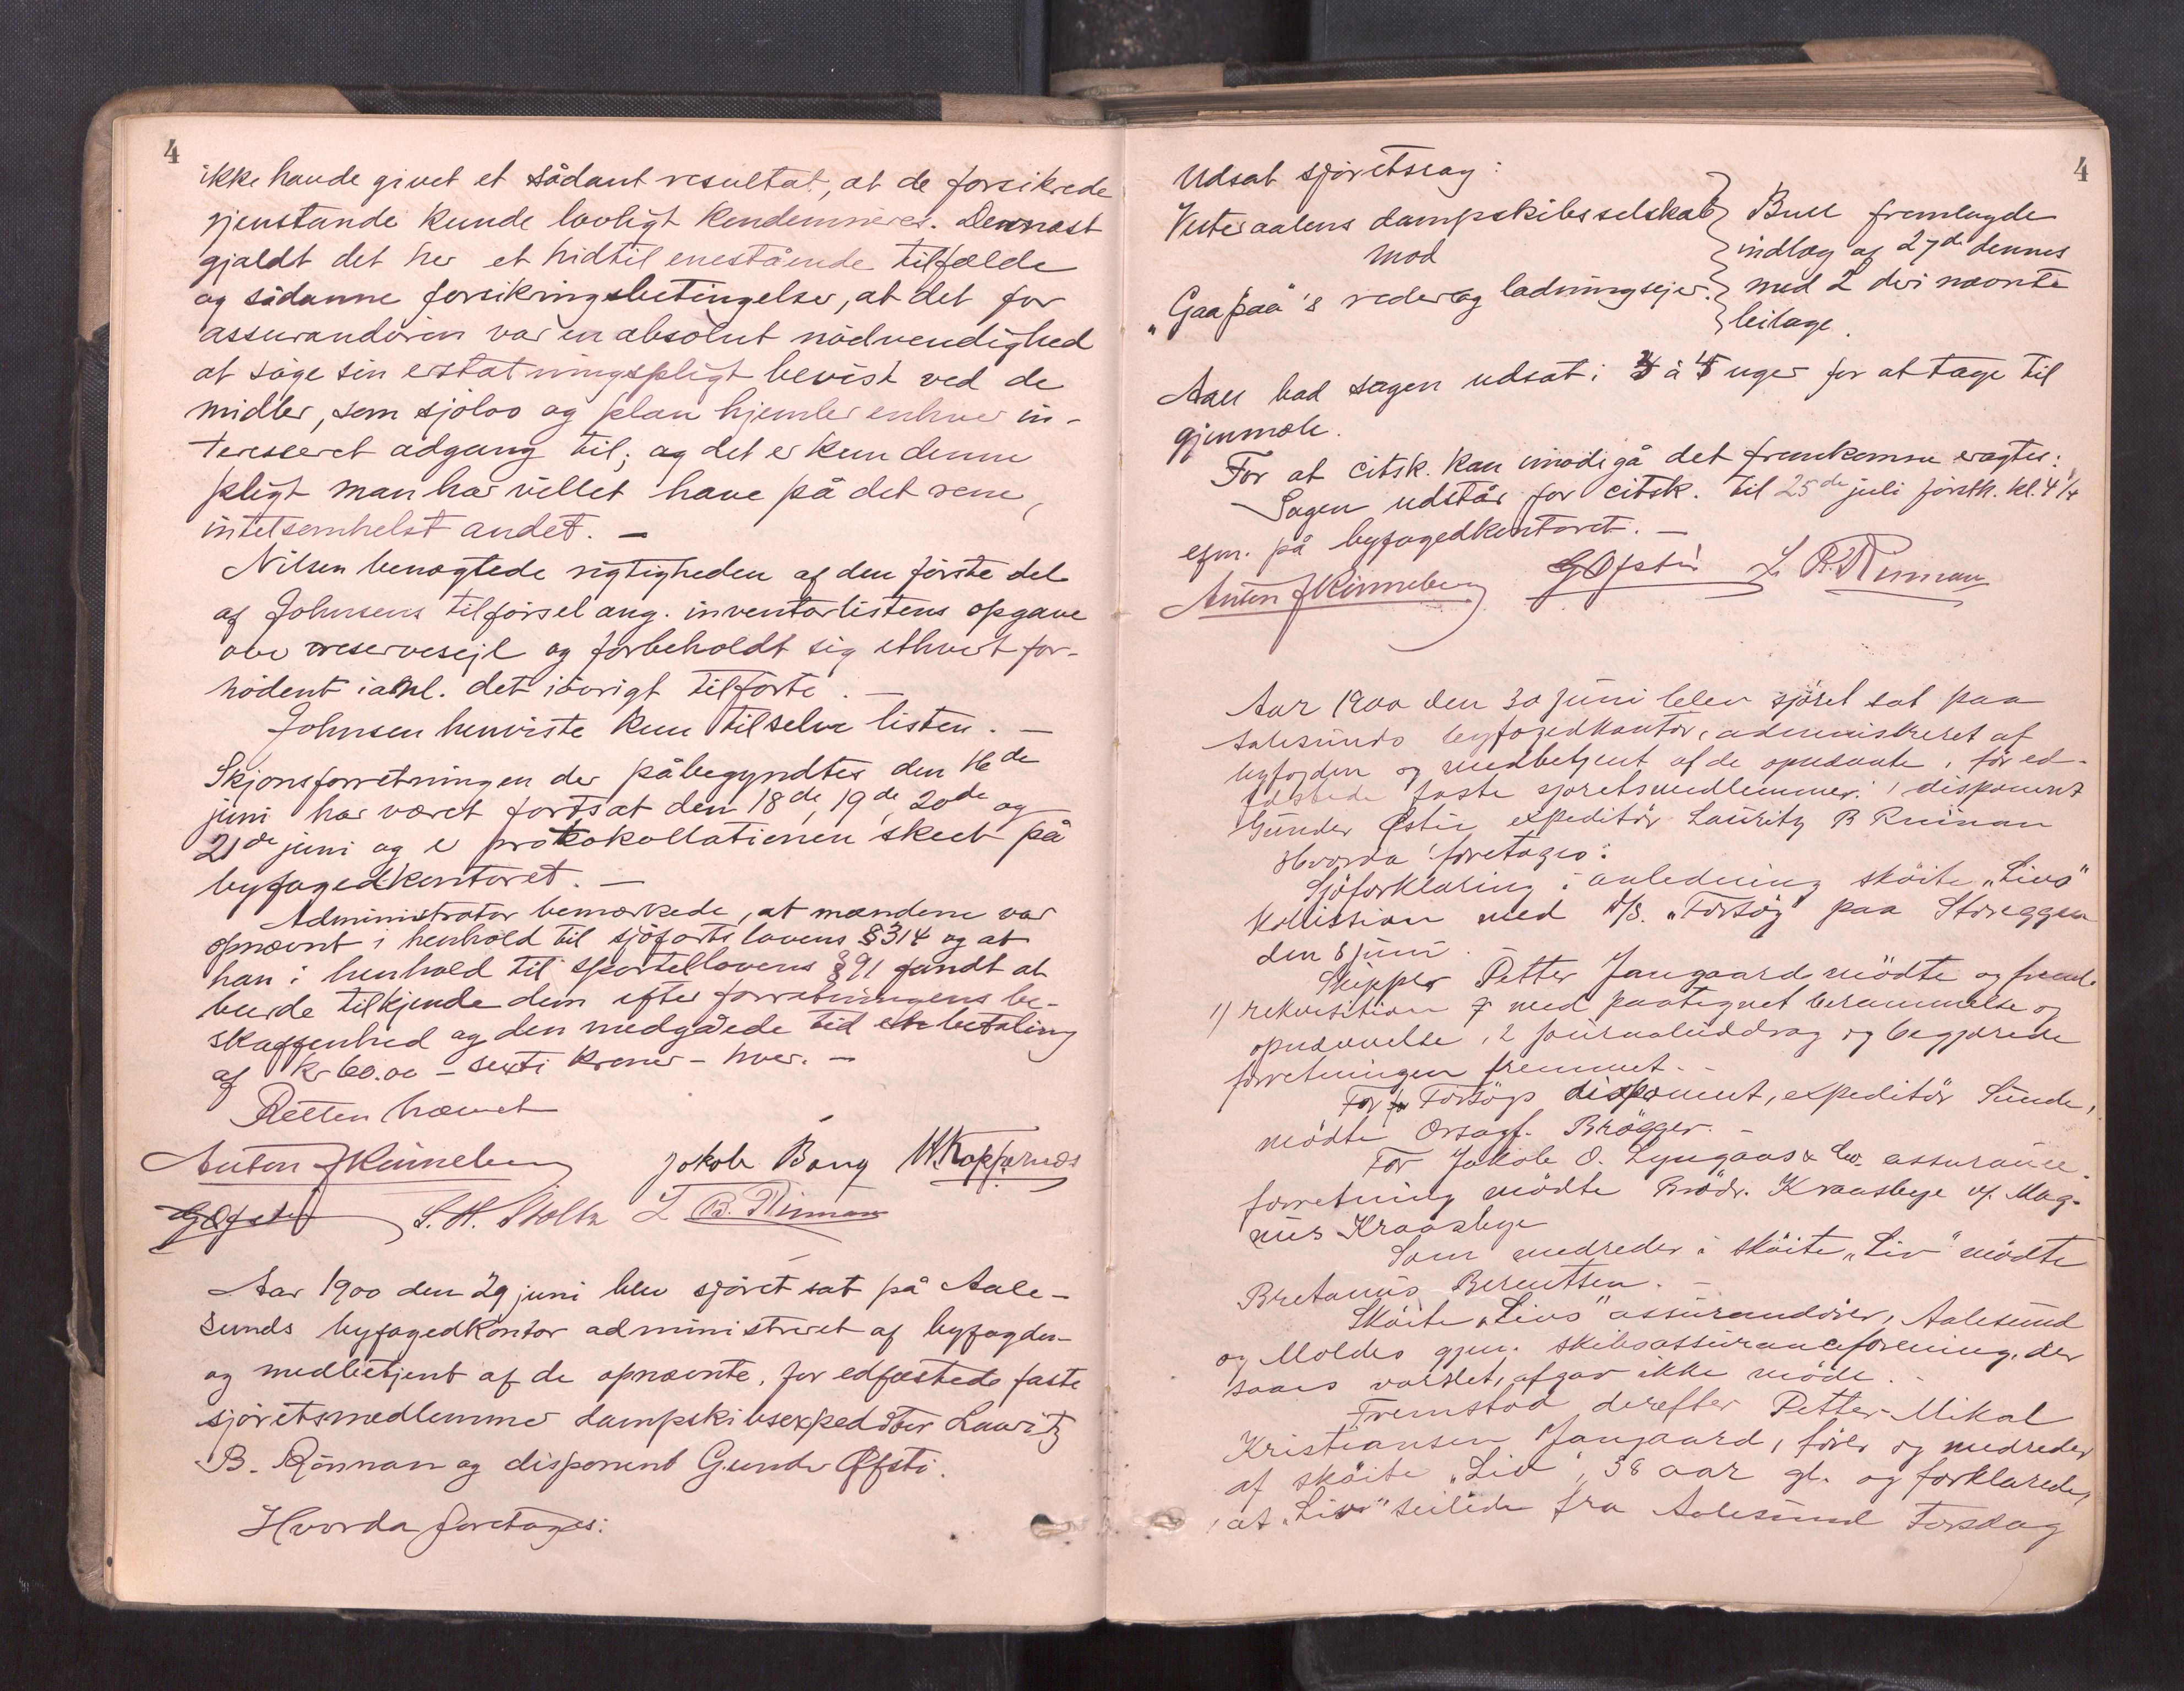 4
ikke havde givet et sådant resultat, at de forsikrede
gjenstande kunde lovligt kondemneres. Dernæst
gjaldt det her et hidtil enestående tilfælde
og sådanne forsikringsbetingelser, at det for
assurandøren var en absolut nødvendighed
at søge sin erstatningspligt bevist ved de
midler, som sjølov og plan hjemler enhver in-
teresseret adgang til; og det er kun denne
pligt man har villet have på det rene,
intetsomhelst andet. —
Nilsen benægtede rigtigheden af den første del
af Johnsens tilførsel ang. inventarlistens opgave
over reservesejl og forbeholdt sig ethvert for-
nødent i anl. det iøvrigt tilførte. —
Johnsen henviste kun til selve listen. —
Skjønsforretningen der påbegyndtes den 16de
juni har været fortsat den 18de, 19de, 20de og
21de juni og er protokollationen skeet på
byfogedkontoret. —
Administrator bemærkede, at mændene var
opnævnt i henhold til sjøfartslovens § 314 og at
han i henhold til sportellovens § 91 fandt at
burde tilkjende dem efter forretningens be-
skaffenhed og den medgåede tid en betaling
af kr 60.00 – sexti kroner – hver. —
Retten hævet
Anton Kinneberg Jakob Bang W. Koppernæs
G Øfsti S. H. Stoltz L B. Rønnan
Aar 1900 den 29 juni blev sjøret sat på Aale-
sunds byfogedkontor administreret af byfogden
og medbetjent af de opnævnte, før edfæstede faste
sjøretsmedlemmer dampskibsexpeditør Lauritz
B. Rønnan og disponent Gunder Øfsti.
Hvorda foretoges:
4
Udsat sjøretssag:
Vesteraalens dampskibsselskab
mod
„Gaa paa"'s reder og ladningsejer.
Bull fremlagde
indlæg af 27de dennes
med 2 deri nævnte
bilage.
Aall bad sagen udsat i 4 à 5 uger for at tage til
gjenmæle.
For at citsk. kan imødegå det fremkomne eragtes:
Sagen udstår for citsk. til 25de juli førstk. kl. 4 1/4
efm. på byfogedkontoret. —
Anton Kinneberg G Øfsti L B. Rønnan
Aar 1900 den 30 juni blev sjøret sat paa
Aalesunds byfogedkontor, administreret af
byfogden og medbetjent af de opnævnte, før ed-
fæstede faste sjøretsmedlemmer: disponent
Gunder Øfsti expeditør Lauritz B Rønnan
Hvorda foretoges:
Sjøforklaring i anledning skøite „Livs"
kollission med D/S. „Forsøg" paa Storeggen
den 8 juni.
Skipper Petter Jangaard mødte og freml.
1) rekvisition med paategnet berammelse og
opnævnelse, 2 journaluddrag og begjærede
forretningen fremmet. -
For Forsøgs disponent, expeditør Sunde,
mødte Orsagf. Brøgger. -
For Jakob O. Lyngaas & Co. assurance-
forretning mødte Brødr. Kraasbye v/ Mag-
nus Kraasbye
Som medreder i skøite „Liv" mødte
Bretanus Berentsen. —
Skøite „Livs" assurandører, Aalesund
og Moldes gjen. skibsassuranceforening, der
saaes varslet, afgav ikke møde. -
Fremstod derefter Petter Mikal
Kristiansen Jangaard, fører og medreder
af skøite „Liv", 38 aar gl. og forklarede,
at „Liv" seilede fra Aalesund Torsdag